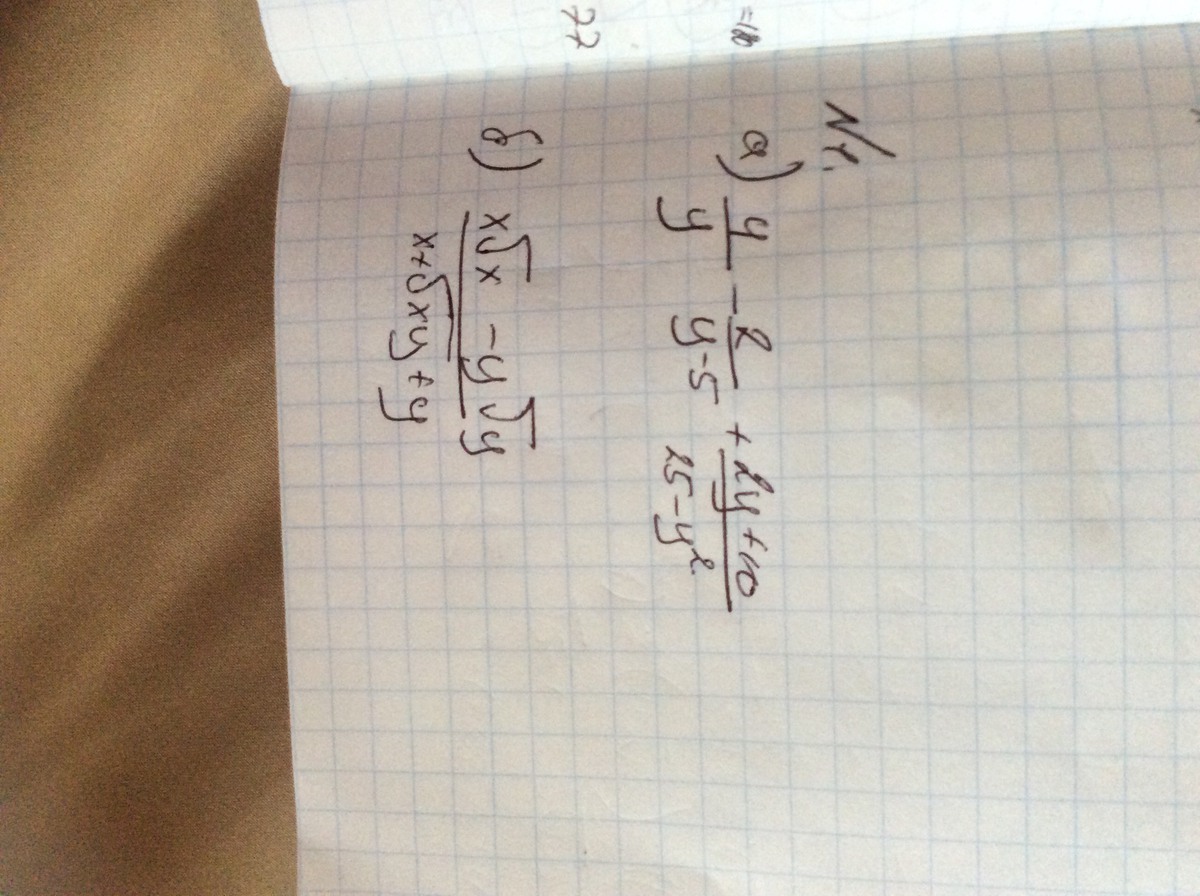 77
N1.
а) 4/y - 2/(y-5) + (2y+10)/(25-y²)
б) (x√x - y√y)/(x+√xy+y)